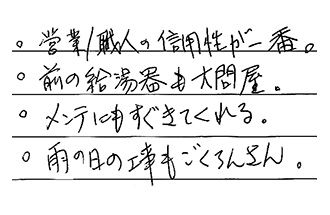 ○ 営業/職人の信用性が一番。
○ 前の給湯器も大問屋。
○ メンテにもすぐきてくれる。
○ 雨の日の工事もごくろんさん。